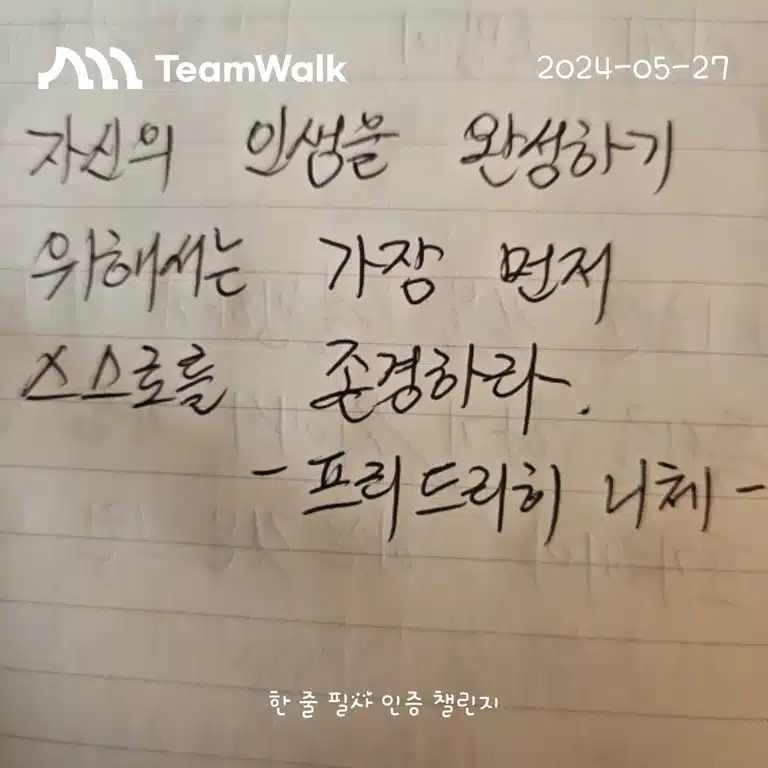 TeamWalk 2024-05-27
자신의 인생을 완성하기
위해서는 가장 먼저
스스로를 존경하라.
- 프리드리히 니체 -
한 줄 필사 인증 챌린지